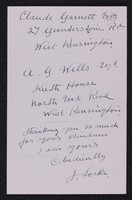 Claude Garnett Esq
27 Gunterstone Rd
West Kensington
A. G. Wells Esqre
Keith House
North End Road
West Kensington
Thanking you so much
for your kindness
I am yours
Obediently
J. Locke